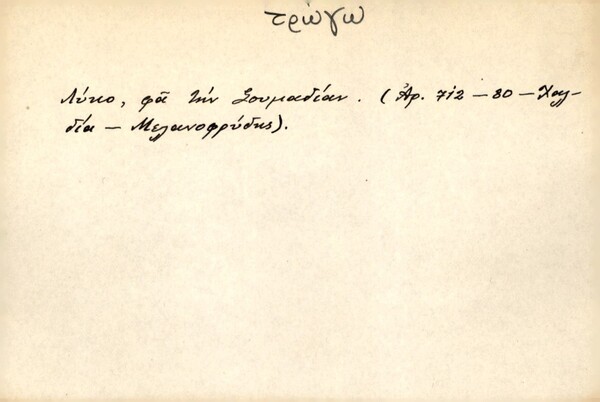 τρώγω
Λύκο, φᾶ τὴν Σουμαδίαν. (Ἀρ. 712 – 80 – Χαλ-
δία – Μελανοφρύδης).